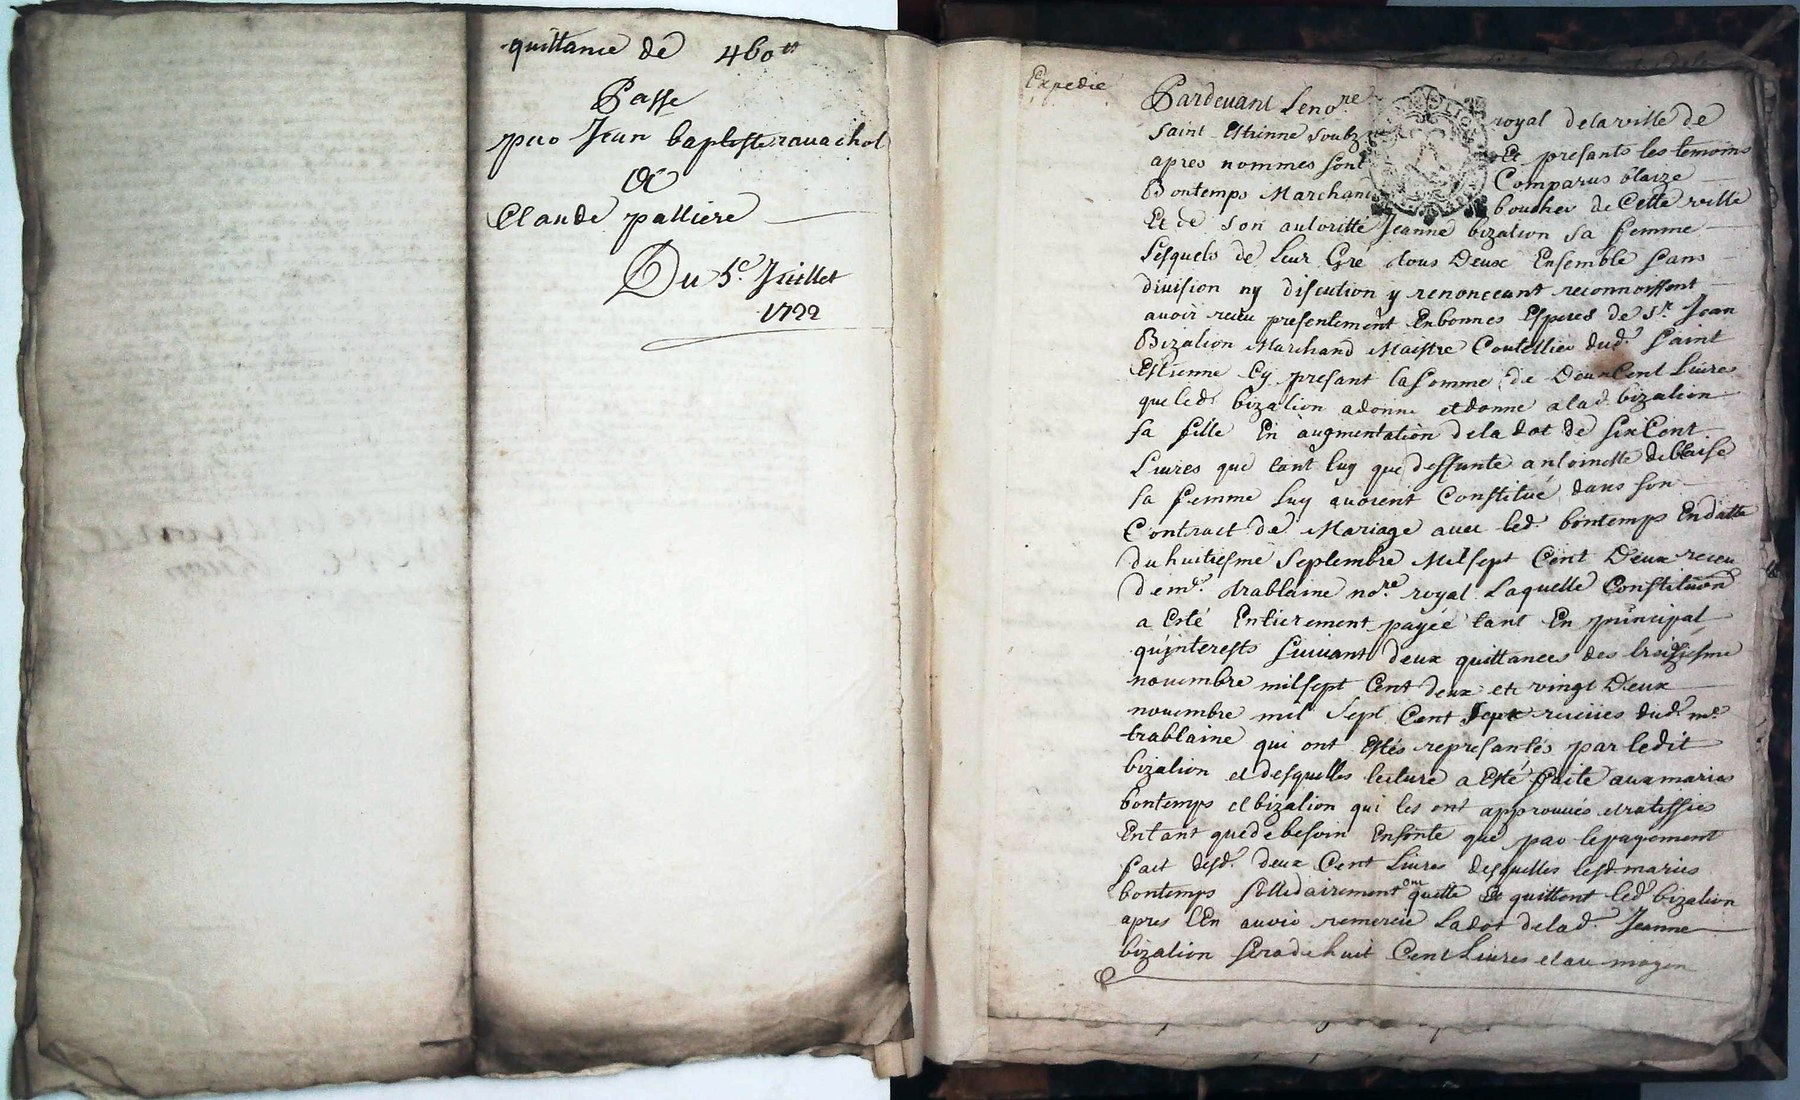 quittance de 460ᵗᵗ
Passe
par Jean baptiste rauachol
A
Claude palliere
Du 5ᵉ Juillet
1722
Expedie
Pardeuant Le noʳᵉ royal de la ville de
Saint Estienne soubz Et presants les temoins
apres nommes sont Comparus blaize
Bontemps Marchand boucher de Cette ville
Et de son autoritté Jeanne bizalion sa femme
Lesquels de Leur Gré tous Deux Ensemble sans
diuision ny discution y renonceant reconnoissent
auoir receu presentement En bonnes Especes de Sʳ Jean
Bizalion Marchand Maistre Coutellier dud. Saint
Estienne Cy presant la somme de Deux Cent Liures
que led. bizalion a donné et donne a lad. bizalion
sa fille En augmentation de la dot de six Cent
Liures que tant luy que deffunte antoinette deblaise
sa femme luy auoient Constitué dans son
Contract de Mariage auec led. bontemps En datte
du huitiesme Septembre Mil sept Cent Deux receu
de mᵉ. trablaine noʳᵉ royal Laquelle Constitution
a Esté Entierement payée tant En principal
qu'interests suiuant deux quittances des treiziesme
nouembre mil sept Cent deux et vingt Deux
nouembre mil sept Cent sept receües dud. mᵉ.
trablaine qui ont Estés representés par ledit
bizalion et desquelles lecture a Esté faite aux maries
bontemps et bizalion qui les ont approuués et ratiffies
En tant que de besoin En sorte que par le payement
fait desd. deux Cent Liures desquelles lesd. maries
bontemps sollidairement ont quitté Et quittent led. bizalion
apres L'En auoir remercié La dot de lad. Jeanne
bizalion sera de huit Cent Liures et au moyen